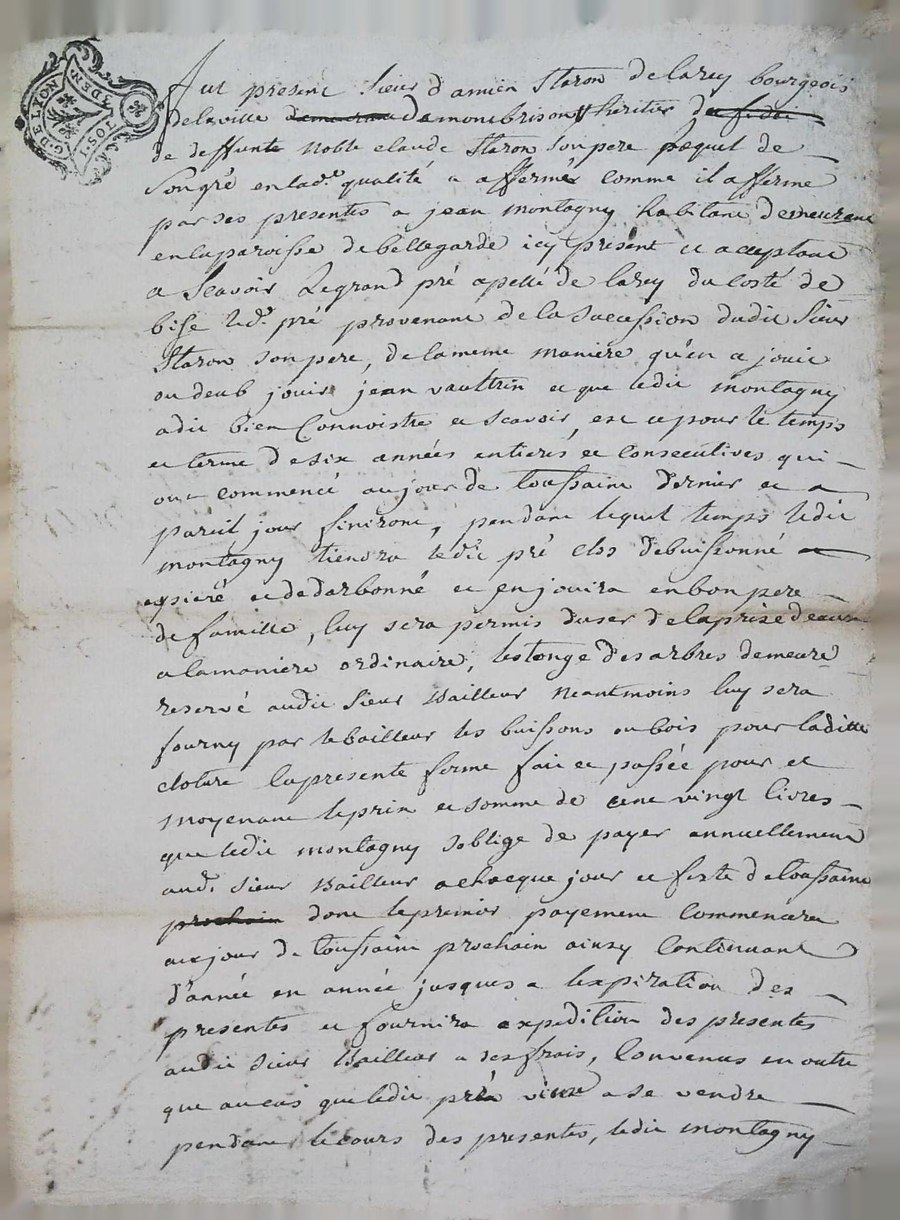 G.D. DE LYON
Fut present Sieur d'amien Staron delarey bourgeois
delaville demonbrison heritier
de deffunte noble claude Staron son pere lequel de
Son gré enlad.e qualité a affermé comme il afferme
par ses presentes a jean montagny habitant demeurant
enlaparoisse debellegarde icy présent et acceptant
a Scavoir Legrand pré apellé de larey du Costé de
bise led.t pré provenant delasuccession dudit Sieur
Staron son pere, delameme maniere qu'en a jouie
ou deub jouir jean vaultrin et que ledit montagny
a dit bien Connoistre et scavoir, est ce pour le temps
et terme desix années entieres et consecutives qui
ont commencé aujour de toussaint dernier et a
pareil jour finiront, pendant lequel temps ledit
montagny tiendra ledit pré clos debuissonné
epieré et dedarbonné et en jouira enbon pere
defamille, luy sera permis duser delaprise deaux
a lamaniere ordinaire, lestonge des arbres demeure
reservé audit Sieur Bailleur neantmoins luy sera
fourny par lebailleur les buissons oubois pour laditte
cloture lapresente ferme fait et passée pour et
moyenant leprix et somme de cent vingt livres
que ledit montagny soblige de payer annuellement
aud.t sieur Bailleur achacque jour et feste detoussaint
prochain dont lepremier payement commencera
aujour de toussaint prochain ainsy Continuant
d'année en année jusques a lexpiration des
presentes et fournira expedition des presentes
audit sieur Bailleur a ses frais, Convenus en outre
que aucas queledit pré vint a se vendre
pendant lecours des presentes, ledit montagny